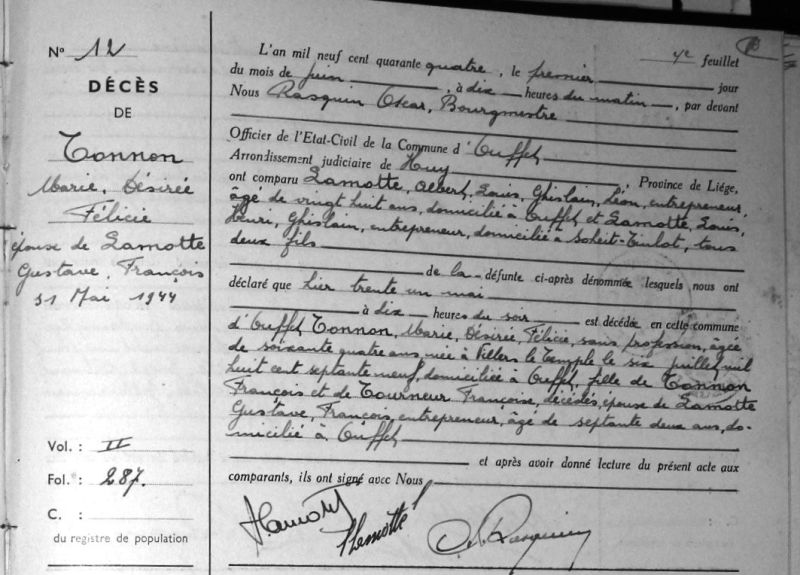 N° 12
DÉCÈS
DE
Tonnon
Marie, Désirée
Félicie
épouse de Lamotte
Gustave, François
31 Mai 1944
Vol. : II
Fol. : 287.
C. :
du registre de population
7e feuillet
L'an mil neuf cent quarante quatre, le premier jour
du mois de juin, à dix heures du matin, par devant
Nous Rasquin Oscar, Bourgmestre
Officier de l'Etat-Civil de la Commune d' Ouffet
Arrondissement judiciaire de Huy, Province de Liége,
ont comparu Lamotte, Albert, Louis, Ghislain, Léon, entrepreneur,
âgé de vingt huit ans, domicilié à Ouffet et Lamotte, Louis,
Henri, Ghislain, entrepreneur, domicilié à Soheit-Tinlot, tous
deux fils
de la défunte ci-après dénommée lesquels nous ont
déclaré que hier trente un mai
à dix heures du soir est décédée en cette commune
d'Ouffet Tonnon, Marie, Désirée, Félicie, sans profession, âgée
de soixante quatre ans, née à Villers le Temple le six juillet mil
huit cent septante neuf, domiciliée à Ouffet, fille de Tonnon
François et de Tourneur Françoise, décédés, épouse de Lamotte
Gustave, François, entrepreneur, âgé de septante deux ans, do-
micilié à Ouffet
et après avoir donné lecture du présent acte aux
comparants, ils ont signé avec Nous
Lamotte
O. Rasquin